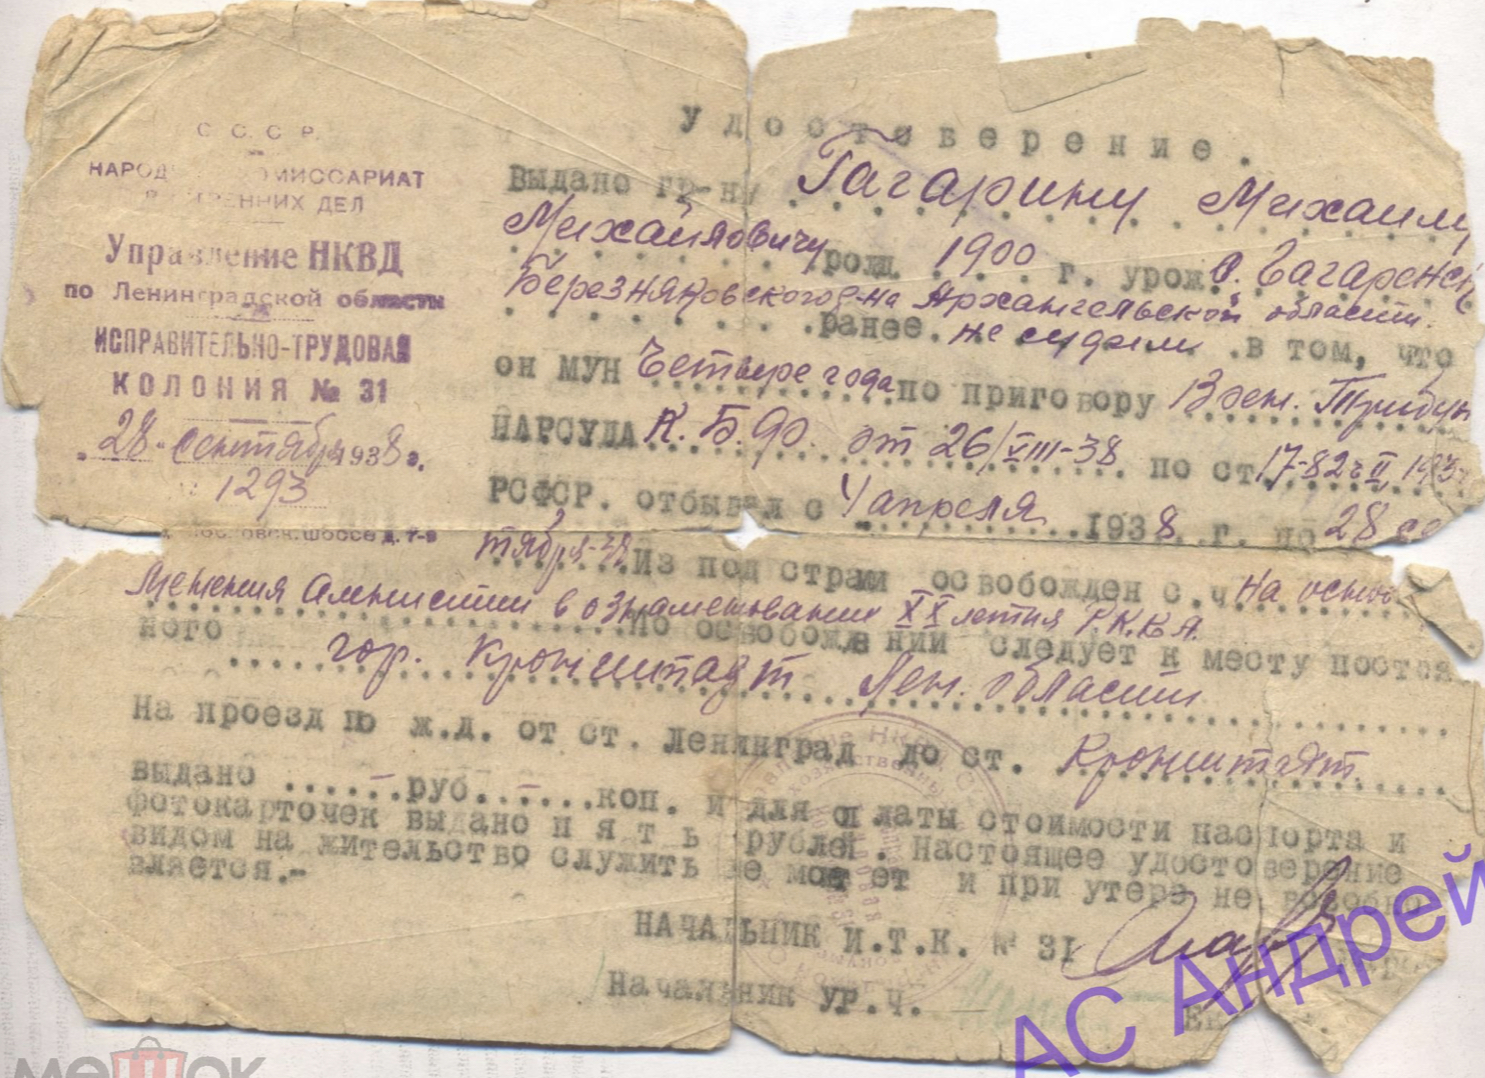 С. С. С. Р.
НАРОД ОМИССАРИАТ
ВНУТРЕННИХ ДЕЛ
Управление НКВД
по Ленинградской области
ИСПРАВИТЕЛЬНО-ТРУДОВАЯ
КОЛОНИЯ № 31
28 сентября 1938 г.
№ 1293
Московск. шоссе д. 7-9
Удостоверение.
Выдано гр-ну Гагарину Михаилу
Михайловичу рожд. 1900 г. урож. с.
Березняковского р-на Архангельской области.
ранее не судим в том, что
он МУН Четыре года по приговору Воен. Трибун
НАРСУДА К.Б.Ф. от 26/VIII-38 по ст 17-82 ч II, 193
РСФСР. отбывал с 4 апреля 1938 г. по 28 се
тября-38 Из под стражи освобожден с.ч. на основ
менения амнистии в ознаменовании XX летия РККА.
По освобождении следует к месту постоя
ного
гор. Кронштадт Лен. области
На проезд по ж.д. от ст. Ленинград до ст. Кронштадт
выдано ...... - руб. - коп. и для оплаты стоимости паспорта и
фотокарточек выдано п я т ь рублей. Настоящее удостоверение
видом на жительство служить не может и при утере не возобно
вляется.-
НАЧАЛЬНИК И.Т.К. № 31
Начальник ур.ч.
АС Андрей
мешок